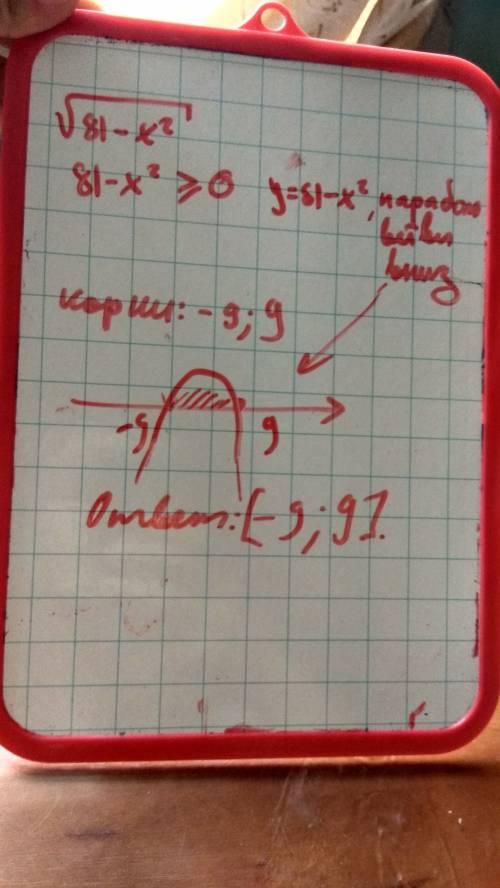 √81-x²
81-x² ⩾ 0
y=81-x², парабола
ветви
вниз
корни: -9; 9
-9 9
Ответ: [-9; 9].